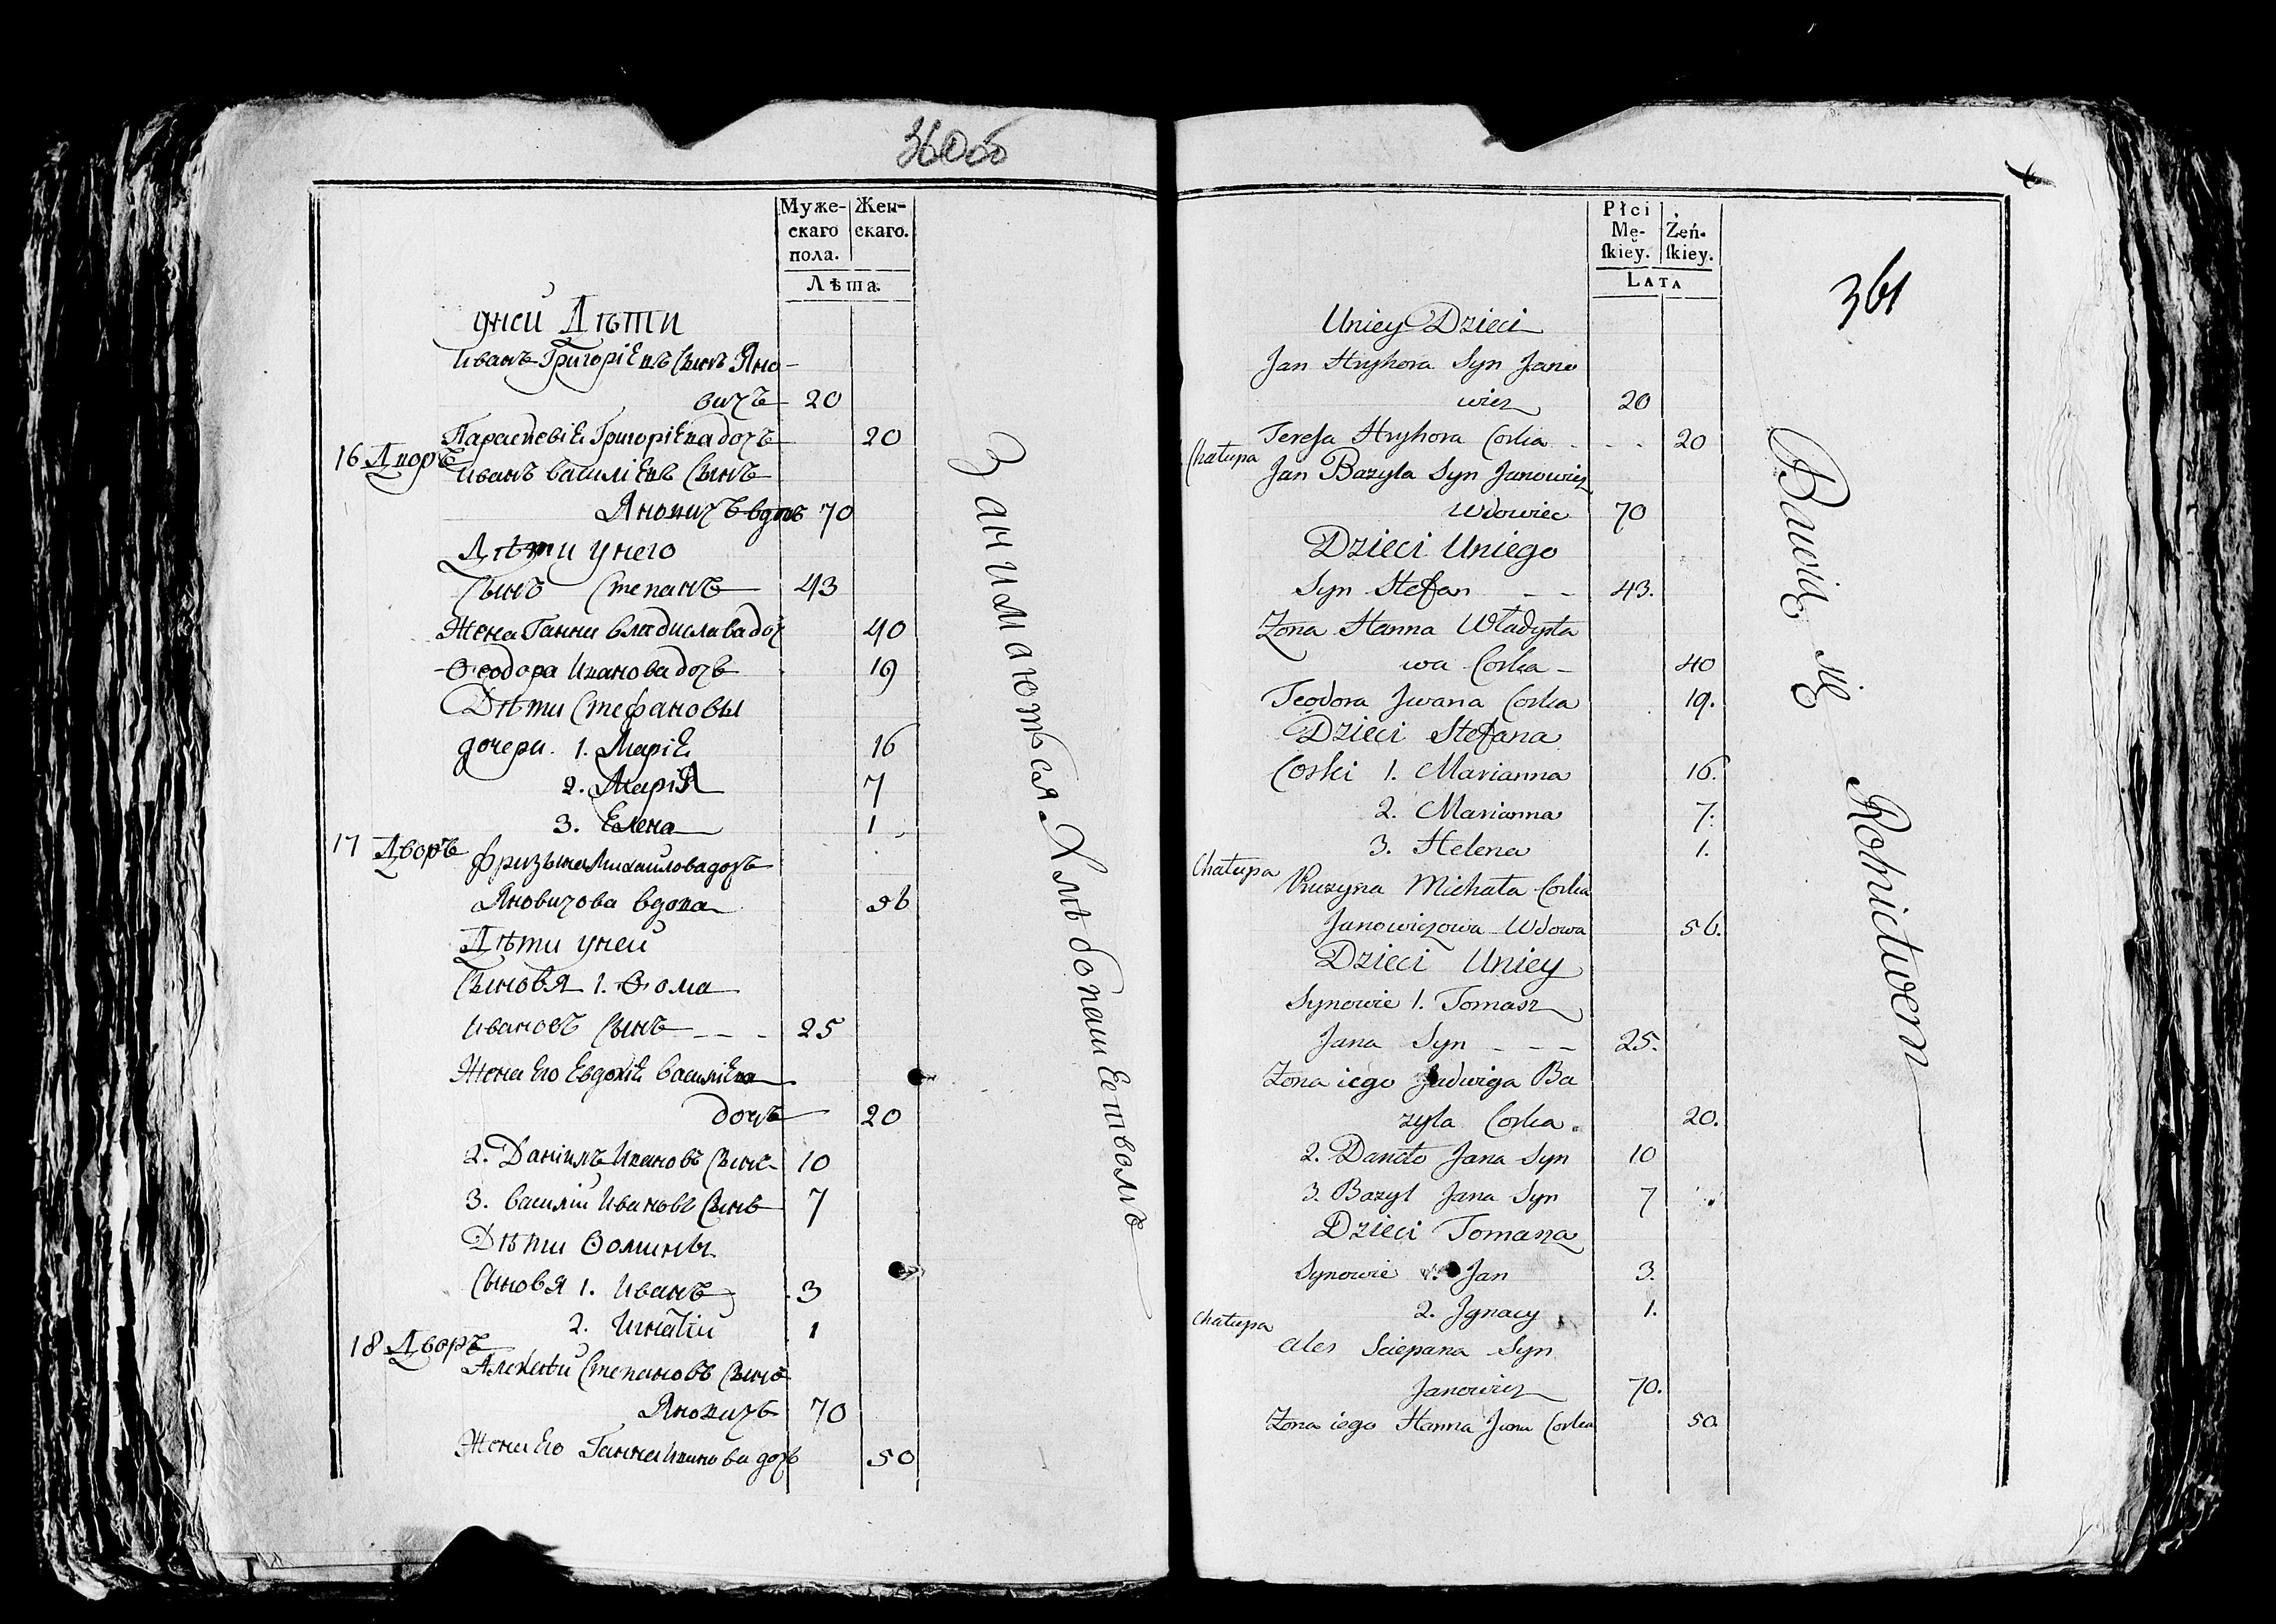 360об
Муже-
скаго
пола.
Жен-
скаго.
Лѣта.
унеи Дѣти
Иванъ Григоріевъ Сынъ Яно-
вичь 20
Параскевія Григоріева дочь 20
16 Дворъ
Иванъ Василіевъ Сынъ
Яновичь вдовъ 70
Дѣти унего
Сынъ Степанъ 43
Жена Ганна Владислава доч 40
Ѳеодора Иванова дочь 19
Дѣти Стефановы
дочери. 1. Марія 16
2. Марія 7
3. Елена 1
17 Дворъ
Михайлова дочь
Яновичова вдова 56
Дѣти уней
Сыновя 1. Ѳома
Ивановъ Сынъ - - - 25
Жена Его Евдокія Василіева
дочь 20
2. Даніилъ Ивановъ Сынъ 10
3. Василій Ивановъ Сынъ 7
Дѣти Ѳомины
Сыновя 1. Иванъ 3
2. Игнатій 1
18 Дворъ
Алексѣй Степановъ Сынъ
Яновичь 70
Жена Его Ганна Иванова дочь 50
Занимаються Хлѣбопашествомъ
Płci
Mę-
skiey.
Żeń-
skiey.
Lata
361
Uniey Dzieci
Jan Hryhora Syn Jano
wicz 20
Teresa Hryhora Corka - - - 20
Chałupa
Jan Bazyla Syn Janowicz
Wdowiec 70
Dzieci Uniego
Syn Stefan - - 43.
Żona Hanna Władysła
wa Corka - 40
Teodora Jwana Corka 19.
Dzieci Stefana
Corki 1. Marianna 16.
2. Marianna 7.
3. Helena 1.
Chałupa
Michała Corka
Janowiczowa Wdowa 56.
Dzieci Uniey
Synowie 1. Tomasz
Jana Syn - - - 25.
Żona iego Jadwiga Ba
zyla Corka. 20.
2. Daniło Jana Syn 10
3. Bazyl Jana Syn 7
Dzieci Tomasza
Synowie 1. Jan 3.
2. Jgnacy 1.
Chałupa
Ales Sciepana Syn
Janowicz 70.
Żona iego Hanna Jwana Corka 50.
Bawią się Rolnictwem